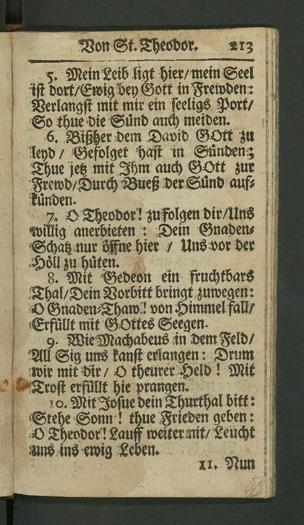 Von St. Theodor. 213
5. Mein Leib ligt hier/mein Seel
ist dort/Ewig bey Gott in Frewden:
Verlangst mit mir ein seeligs Port/
So thue die Sünd auch meiden.
6. Bißher dem David GOtt zu
leyd/ Gefolget hast in Sünden:
Thue jetz mit Ihm auch GOtt zur
Frewd/Durch Bueß der Sünd auf-
künden.
7. O Theodor! zufolgen dir/Uns
willig anerbieten : Dein Gnaden-
Schatz nur öffne hier / Uns vor der
Höll zu hüten.
8. Mit Gedeon ein fruchtbars
Thal/Dein Vorbitt bringt zuwegen:
O Gnaden-Thaw! von Himmel fall/
Erfüllt mit GOttes Seegen.
9. Wie Machabeus in dem Feld/
All Sig uns kanst erlangen: Drum
wir mit dir/ O theurer Held ! Mit
Trost erfüllt hie prangen.
10. Mit Josue dein Thurthal bitt:
Stehe Sonn! thue Frieden geben:
O Theodor! Lauff weiter nit/Leucht
uns ins ewig Leben.
11. Nun